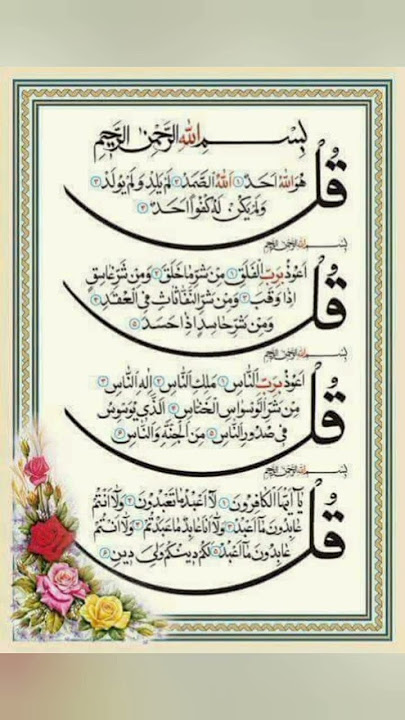 بِسْمِ اللهِ الرَّحْمٰنِ الرَّحِيْمِ
قُلْ هُوَ اللهُ اَحَدٌ ۱ اَللهُ الصَّمَدُ ۲ لَمْ يَلِدْ وَلَمْ يُولَدْ ۳
وَلَمْ يَكُنْ لَهُ كُفُوًا اَحَدٌ ۴
بِسْمِ اللهِ الرَّحْمٰنِ الرَّحِيْمِ
قُلْ اَعُوذُ بِرَبِّ الْفَلَقِ ۱ مِنْ شَرِّ مَا خَلَقَ ۲ وَمِنْ شَرِّ غَاسِقٍ
اِذَا وَقَبَ ۳ وَمِنْ شَرِّ النَّفَّاثَاتِ فِي الْعُقَدِ ۴
وَمِنْ شَرِّ حَاسِدٍ اِذَا حَسَدَ ۵
بِسْمِ اللهِ الرَّحْمٰنِ الرَّحِيْمِ
قُلْ اَعُوذُ بِرَبِّ النَّاسِ ۱ مَلِكِ النَّاسِ ۲ اِلٰهِ النَّاسِ ۳
مِنْ شَرِّ الْوَسْوَاسِ الْخَنَّاسِ ۴ اَلَّذِي يُوَسْوِسُ
فِي صُدُورِ النَّاسِ ۵ مِنَ الْجِنَّةِ وَالنَّاسِ ۶
بِسْمِ اللهِ الرَّحْمٰنِ الرَّحِيْمِ
قُلْ يَا اَيُّهَا الْكَافِرُونَ ۱ لَا اَعْبُدُ مَا تَعْبُدُونَ ۲ وَلَا اَنْتُمْ
عَابِدُونَ مَا اَعْبُدُ ۳ وَلَا اَنَا عَابِدٌ مَا عَبَدْتُمْ ۴ وَلَا اَنْتُمْ
عَابِدُونَ مَا اَعْبُدُ ۵ لَكُمْ دِينُكُمْ وَلِيَ دِينِ ۶